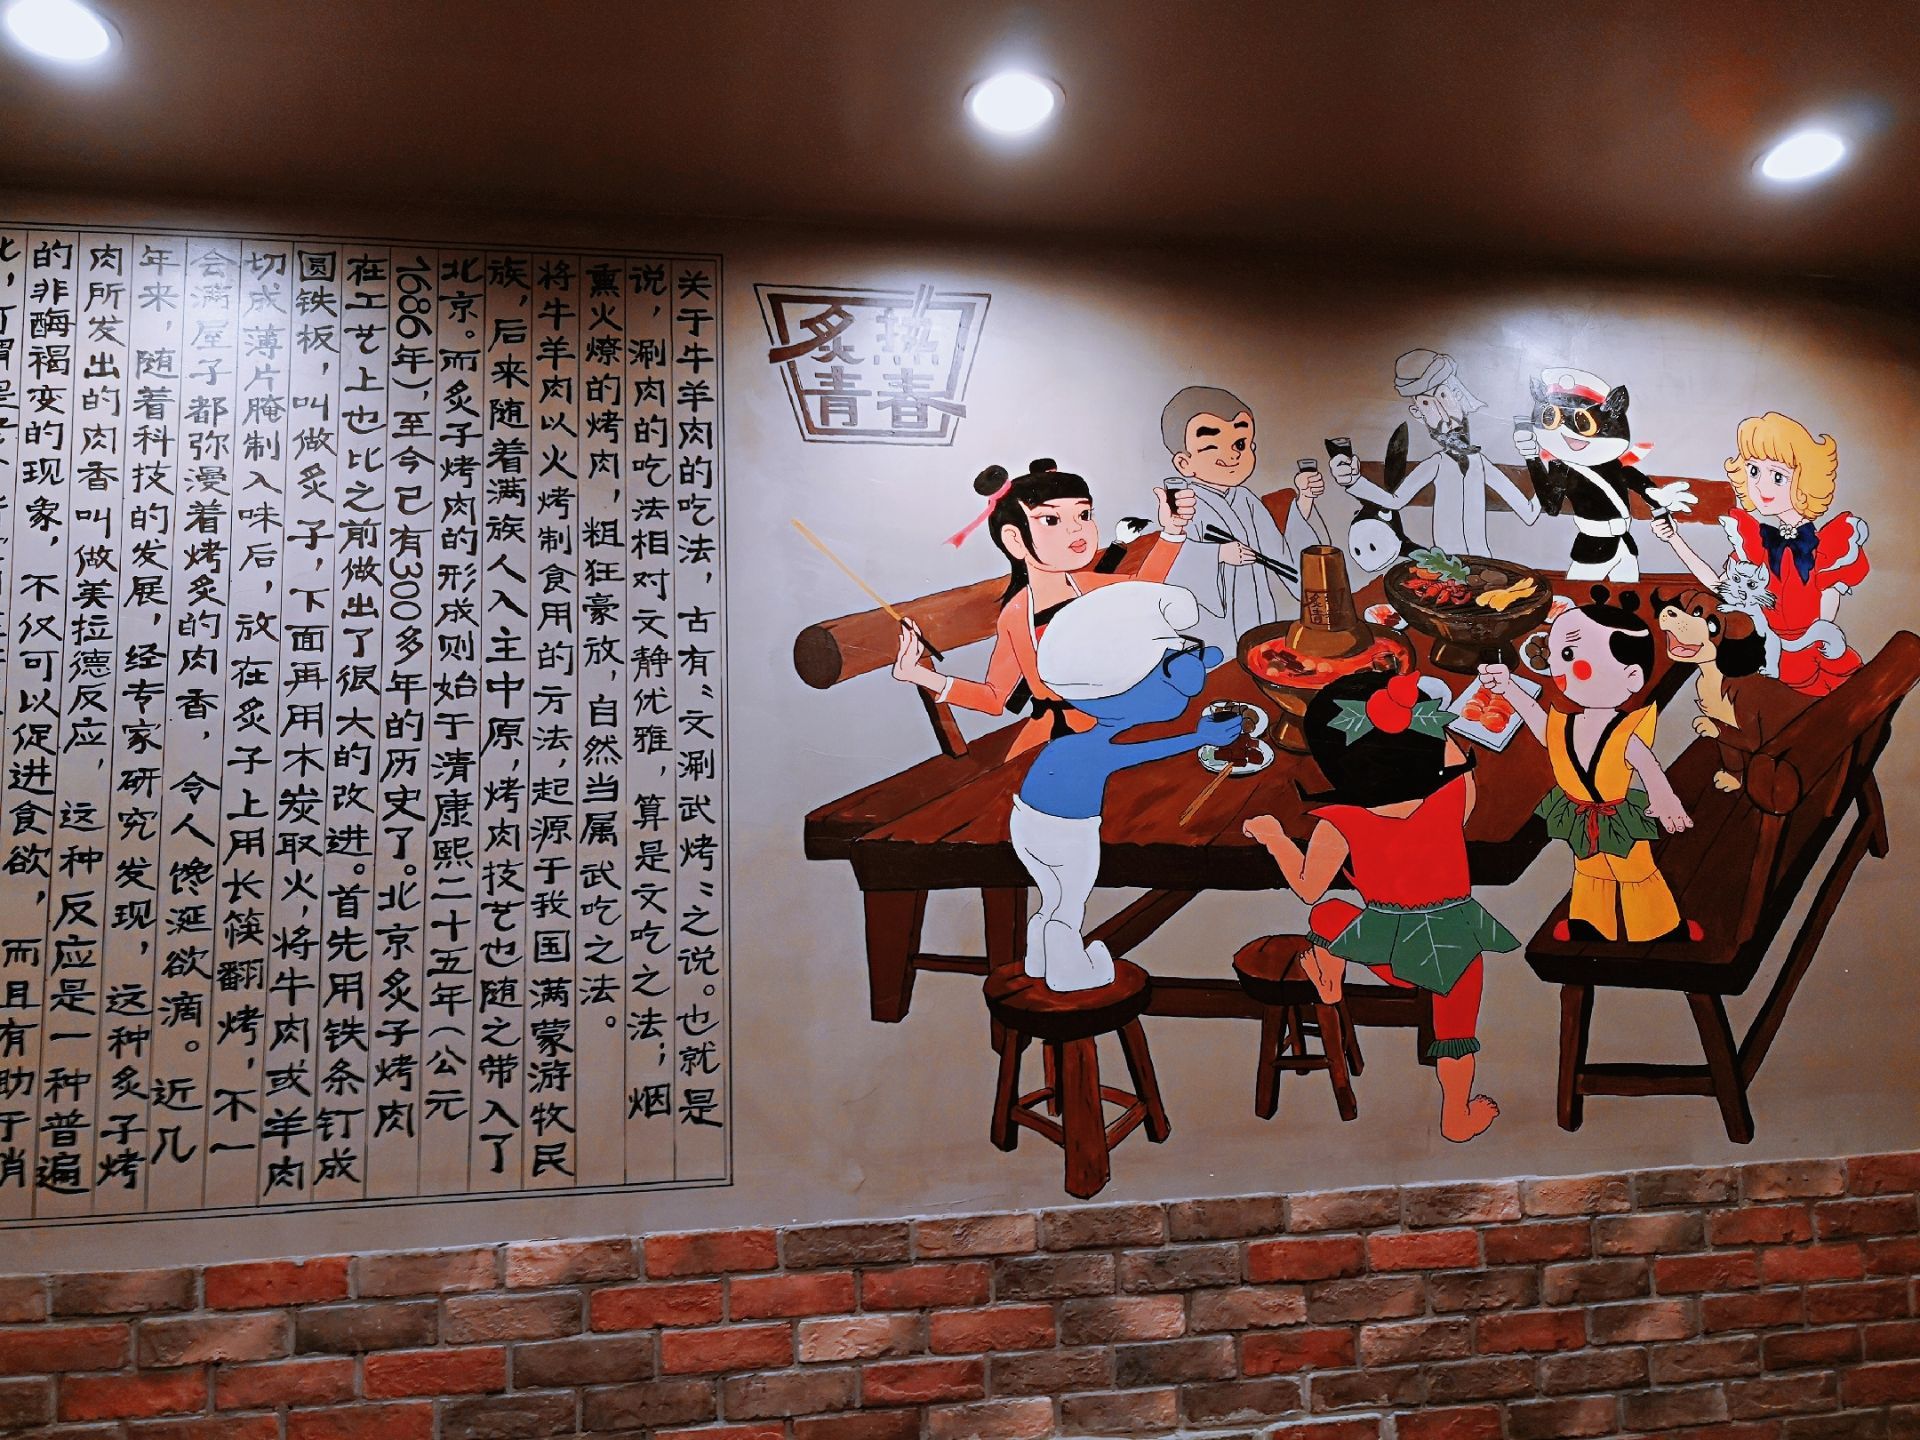 关于牛羊肉的吃法，古有〝文涮武烤〞之说。也就是
说，涮肉的吃法相对文静优雅，算是文吃之法；烟
熏火燎的烤肉，粗狂豪放，自然当属武吃之法。
将牛羊肉以火烤制食用的方法，起源于我国满蒙游牧民
族，后来随着满族人入主中原，烤肉技艺也随之带入了
北京。而炙子烤肉的形成则始于清康熙二十五年（公元
1686年），至今已有300多年的历史了。北京炙子烤肉
在工艺上也比之前做出了很大的改进。首先用铁条钉成
圆铁板，叫做炙子，下面再用木炭取火，将牛肉或羊肉
切成薄片腌制入味后，放在炙子上用长筷翻烤，不一
会满屋子都弥漫着烤炙的肉香，令人馋涎欲滴。近几
年来，随着科技的发展，经专家研究发现，这种炙子烤
肉所发出的肉香叫做美拉德反应，这种反应是一种普遍
的非酶褐变的现象，不仅可以促进食欲，而且有助于消
炙热
青春